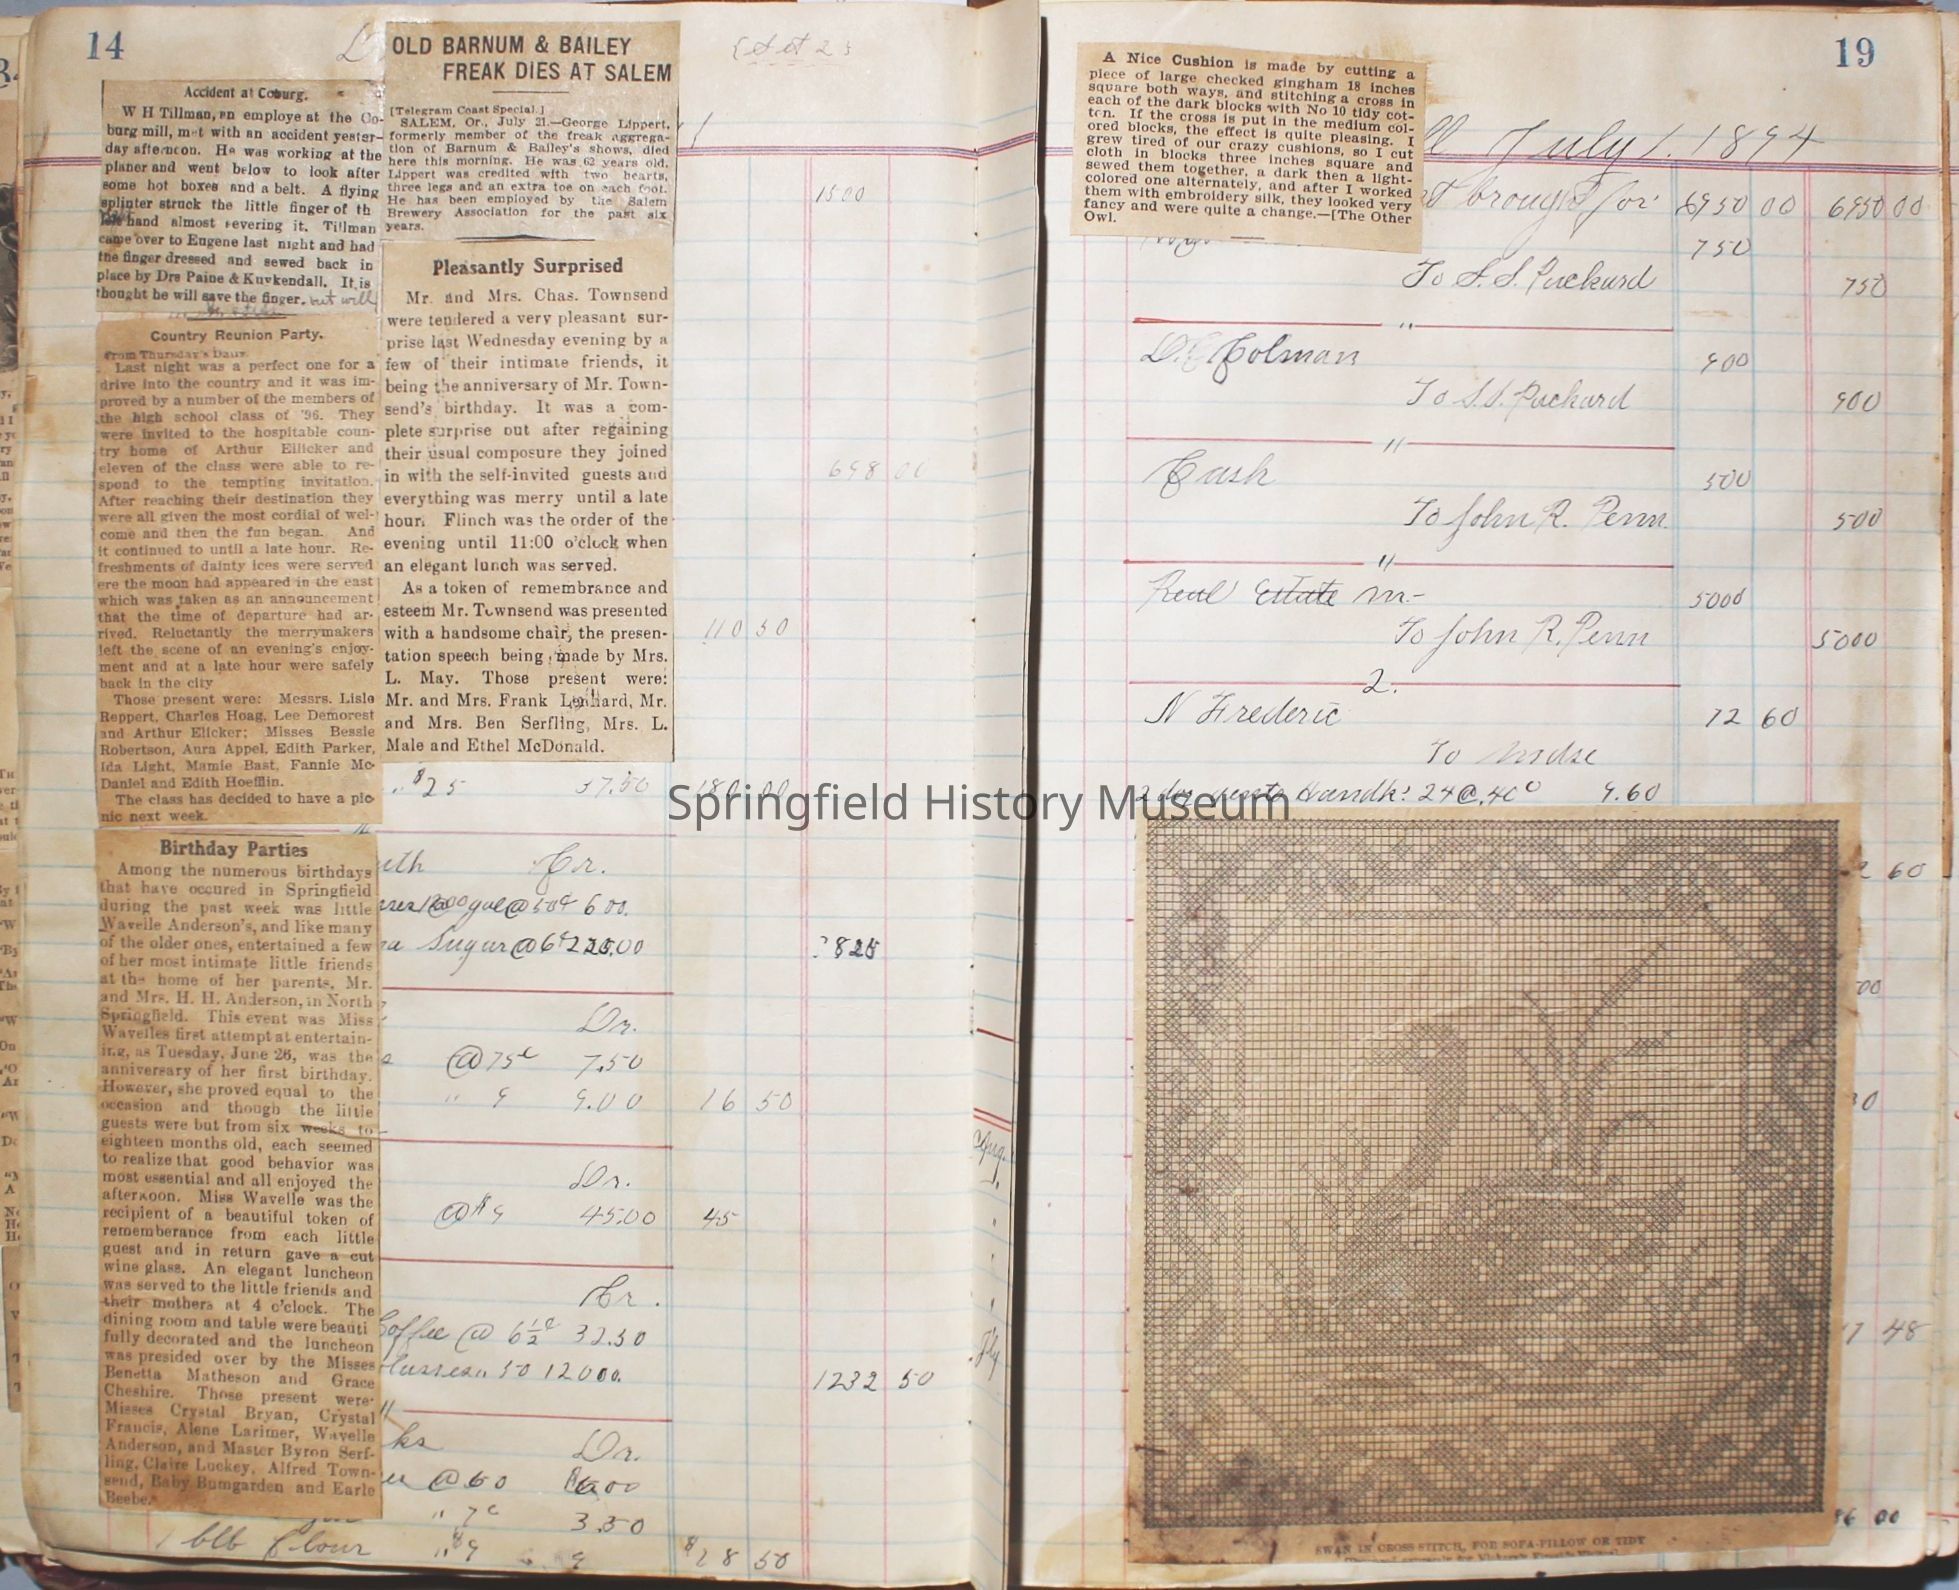 14
Accident at Coburg.
W H Tillman, an employe at the Co-
burg mill, met with an accident yester-
day afternoon. He was working at the
planer and went below to look after
some hot boxes and a belt. A flying
splinter struck the little finger of th
hand almost severing it. Tillman
came over to Eugene last night and had
the finger dressed and sewed back in
place by Drs Paine & Kuykendall. It is
thought he will save the finger. but will
Country Reunion Party.
From Thursday's Daily
Last night was a perfect one for a
drive into the country and it was im-
proved by a number of the members of
the high school class of '96. They
were invited to the hospitable coun-
try home of Arthur Ellicker and
eleven of the class were able to re-
spond to the tempting invitation.
After reaching their destination they
were all given the most cordial of wel-
come and then the fun began. And
it continued to until a late hour. Re-
freshments of dainty ices were served
ere the moon had appeared in the east
which was taken as an announcement
that the time of departure had ar-
rived. Reluctantly the merrymakers
left the scene of an evening's enjoy-
ment and at a late hour were safely
back in the city
Those present were: Messrs. Lisle
Reppert, Charles Hoag, Lee Demorest
and Arthur Elicker; Misses Bessie
Robertson, Aura Appel, Edith Parker,
Ida Light, Mamie Bast, Fannie Mc-
Daniel and Edith Hoefflin.
The class has decided to have a pic-
nic next week.
Birthday Parties
Among the numerous birthdays
that have occured in Springfield
during the past week was little
Wavelle Anderson's, and like many
of the older ones, entertained a few
of her most intimate little friends
at the home of her parents, Mr.
and Mrs. H. H. Anderson, in North
Springfield. This event was Miss
Wavelles first attempt at entertain-
ing, as Tuesday, June 26, was the
anniversary of her first birthday.
However, she proved equal to the
occasion and though the little
guests were but from six weeks to
eighteen months old, each seemed
to realize that good behavior was
most essential and all enjoyed the
afternoon. Miss Wavelle was the
recipient of a beautiful token of
rememberance from each little
guest and in return gave a cut
wine glass. An elegant luncheon
was served to the little friends and
their mothers at 4 o'clock. The
dining room and table were beauti
fully decorated and the luncheon
was presided over by the Misses
Benetta Matheson and Grace
Cheshire. Those present were:
Misses Crystal Bryan, Crystal
Francis, Alene Larimer, Wavelle
Anderson, and Master Byron Serf-
ling, Claire Luckey, Alfred Town-
send, Baby Bumgarden and Earle
Beebe.
OLD BARNUM & BAILEY
FREAK DIES AT SALEM
[Telegram Coast Special.]
SALEM, Or., July 21.—George Lippert,
formerly member of the freak aggrega-
tion of Barnum & Bailey's shows, died
here this morning. He was 62 years old.
Lippert was credited with two hearts,
three legs and an extra toe on each foot.
He has been employed by the Salem
Brewery Association for the past six
years.
Pleasantly Surprised
Mr. and Mrs. Chas. Townsend
were tendered a very pleasant sur-
prise last Wednesday evening by a
few of their intimate friends, it
being the anniversary of Mr. Town-
send's birthday. It was a com-
plete surprise out after regaining
their usual composure they joined
in with the self-invited guests and
everything was merry until a late
hour. Flinch was the order of the
evening until 11:00 o'clock when
an elegant lunch was served.
As a token of remembrance and
esteem Mr. Townsend was presented
with a handsome chair, the presen-
tation speech being made by Mrs.
L. May. Those present were:
Mr. and Mrs. Frank Lenhard, Mr.
and Mrs. Ben Serfling, Mrs. L.
Male and Ethel McDonald.
1500
698 00
110 50
$25 37.50 180 00
Cr.
gal @ 50¢ 600.
Sugar @ 6¢ 00
825
Dr.
@ 75¢ 7.50
" 9 9.00 16 50
Dr.
@ $9 45.00 45
Cr.
Coffee @ 6½¢ 32.50
50 12000.
1232 50
Dr.
@ 60 600
" 7¢ 3.50
1 bbl flour " $9 9 $28 50
19
A Nice Cushion is made by cutting a
piece of large checked gingham 18 inches
square both ways, and stitching a cross in
each of the dark blocks with No 10 tidy cot-
ton. If the cross is put in the medium col-
ored blocks, the effect is quite pleasing. I
grew tired of our crazy cushions, so I cut
cloth in blocks three inches square and
sewed them together, a dark then a light-
colored one alternately, and after I worked
them with embroidery silk, they looked very
fancy and were quite a change.—[The Other
Owl.
July 1. 1894
brought for 6950 00 6950 00
750
To S. S. Packard 750
"
D. C. Colman 900
To S. S. Packard 900
"
Cash 500
To John R. Penn 500
"
Real Estate m- 5000
To John R. Penn 5000
2.
N Frederic 72 60
To Mdse
2 doz gents Handk! 24 @ .40¢ 9.60
Springfield History Museum
60
00
48
00
SWAN IN CROSS STITCH, FOR SOFA-PILLOW OR TIDY